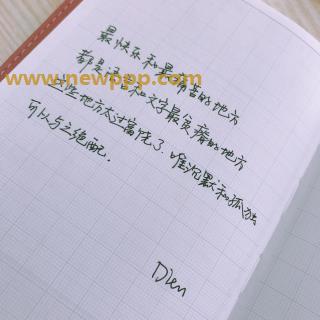 最快乐和最痛苦的地方
www.newppp.com
都是语言和文字最贫瘠的地方
这些地方太过富饶了，唯沉默和孤独
可以与之绝配.
Dlen